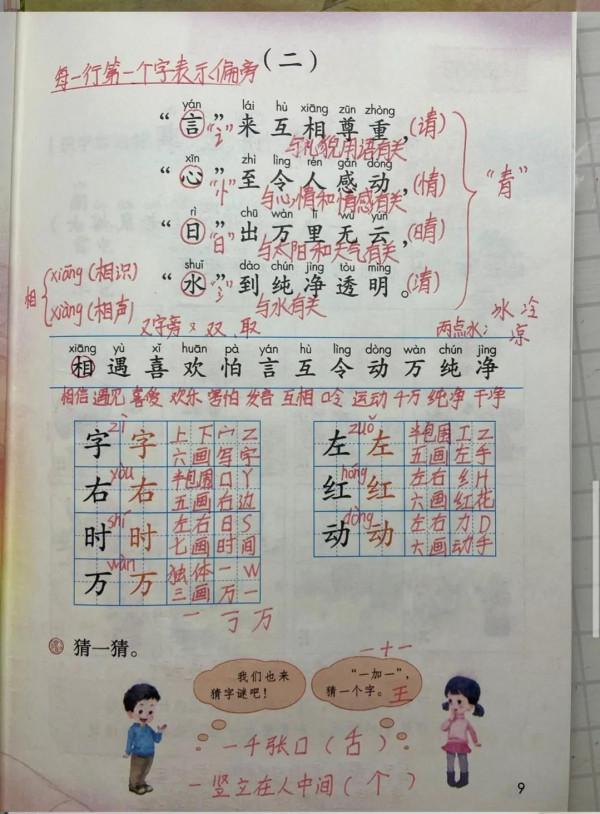 每一行第一个字表示偏旁
(二)
yán lái hù xiāng zūn zhòng
“言”来互相尊重，(请)
“讠” 与礼貌用语有关
xīn zhì lìng rén gǎn dòng
“心”至令人感动，(情)
“忄” 与心情和情感有关
“青”
rì chū wàn lǐ wú yún
“日”出万里无云，(晴)
“日” 与太阳和天气有关
shuǐ dào chún jìng tòu míng
“水”到纯净透明。(清)
“氵” 与水有关
相 xiāng (相识)
xiàng (相声)
又字旁 又 双 取
两点水: 冰 冷 凉
xiāng yù xǐ huān pà yán hù lìng dòng wàn chún jìng
相 遇 喜 欢 怕 言 互 令 动 万 纯 净
相信 遇见 喜爱 欢乐 害怕 发言 互相 口令 运动 千万 纯净 干净
zì
字 字 上下 宀 Z
六画 写字
yòu
右 右 半包围 口 Y
五画 右边
shí
时 时 左右 日 S
七画 时间
wàn
万 万 独体 一 W
三画 万一
一 丁 万
zuǒ
左 左 半包围 工 Z
五画 左手
hóng
红 红 左右 纟 H
六画 红花
dòng
动 动 左右 力 D
六画 动手
猜一猜。
一十一
我们也来
猜字谜吧！
“一加一”，
猜一个字。王
一千张口 (舌)
一竖立在人中间 (个)
9